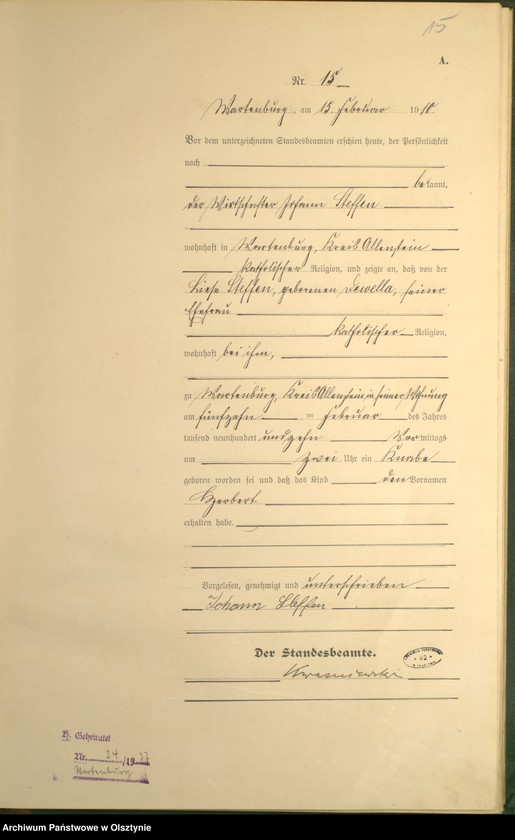 15
A.
Nr. 15
Wartenburg, am 15. Februar 1910.
Vor dem unterzeichneten Standesbeamten erschien heute, der Persönlichkeit
nach
bekannt,
der Wirtschafter Johann Steffen
wohnhaft in Wartenburg, Kreis Allenstein
katholischer Religion, und zeigte an, daß von der
Steffen, geborenen seiner
Ehefrau
katholischer Religion,
wohnhaft bei ihm,
zu Wartenburg, Kreis Allenstein, in seiner Wohnung
am fünfzehn ten Februar des Jahres
tausend neunhundert und zehn Vormittags
um zwei Uhr ein Knabe
geboren worden sei und daß das Kind den Vornamen
Herbert
erhalten habe.
Vorgelesen, genehmigt und unterschrieben
Johann Steffen
Der Standesbeamte.
H. Geheiratet
Nr. 24/1937
Wartenburg
Archiwum Państwowe w Olsztynie